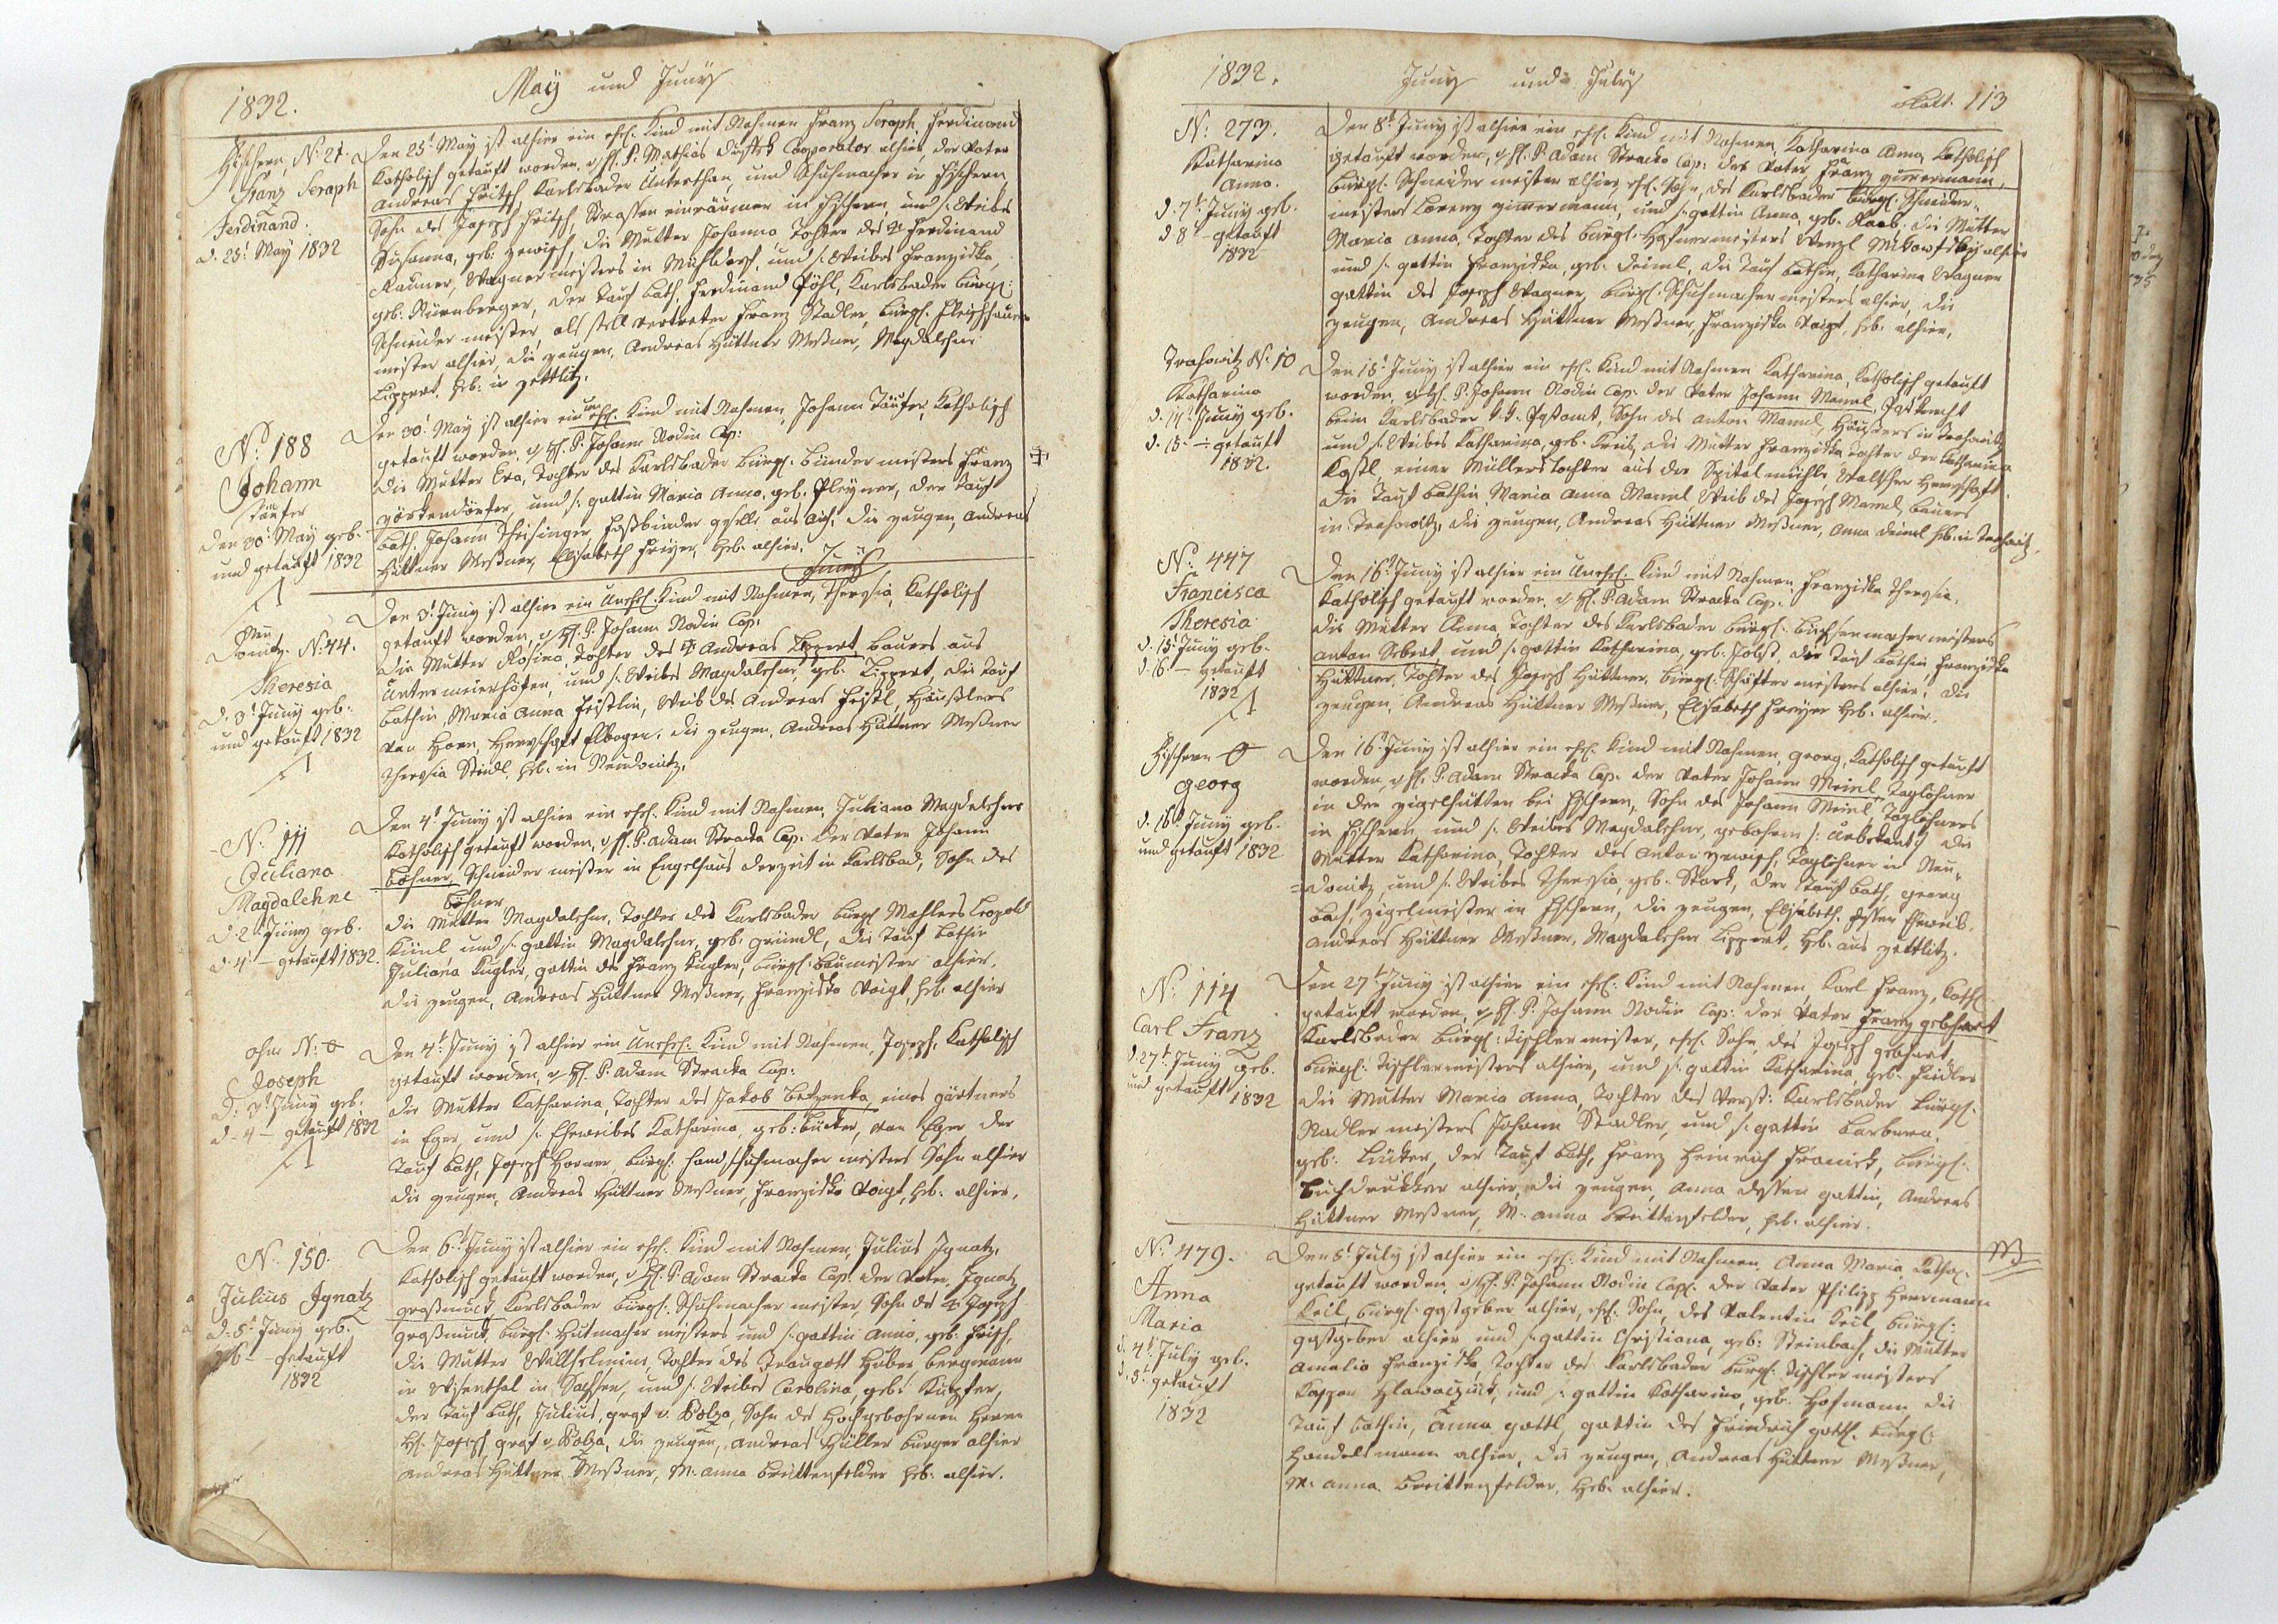 1832.
May und Juny
Fischern, N: 21.
Franz Seraph
Ferdinand.
d. 25t May 1832
Den 25t May ist alhier ein ehel. Kind mit Nahmen Franz Seraph. Ferdinand
Katholisch getauft worden, v. H. P. Mathias Cooperator alhier, der Vater
Andreas Fritsch, Karlsbader Unterthan, und Schuhmacher in Fischern
Sohn des Joseph Fritsch, Strassen einräumer in Fischern, und s. Weibes
Susanna, geb. die Mutter Johanna Tochter des Ferdinand
Wagnermeisters in Mühldorf, und s. Weibes Franziska,
geb. Nürnberger, der Tauf Path, Ferdinand Pöhl, Karlsbader bürgl:
Schneider meister, als stell vertreter Franz Stadler, bürgl. Fleischhauer
meister alhier, die Zeugen, Andreas Hüttner Meßner, Magdalehna
Lippert, Heb: in Zettlitz.
N: 188
Johann
Täufer
den 30t May geb.
und getauft 1832
Den 30t May ist alhier ein unehel. Kind mit Nahmen, Johann Täufer, Katholisch
getauft worden, v. H. P. Johann Nodin Cap:
die Mutter Eva, Tochter des Karlsbader bürgl. binder meisters Franz
und s. gattin Maria Anna, geb. Pleyner, der Tauf
Path, Johann Theisinger Faßbinder gesell aus die Zeugen, Andreas
Hüttner Meßner, Elisabeth Heb: alhier.
Juny
Neu
Donitz. N: 44.
Theresia
d. 3t Juny geb.
und getauft 1832
Den 3t Juny ist alhier ein Unehel. Kind mit Nahmen, Theresia, Katholisch
getauft worden, v. H. P. Johann Nodin Cap.
die Mutter Rosina, Tochter des Andreas Lippert, bauers aus
Unter meierhöfen, und s. Weibes Magdalehna, geb: Lippert, die Tauf
Pathin, Maria Anna Weib des Andreas Häußlers
von Horn, Herrschaft Elbogen, die Zeugen, Andreas Hüttner Meßner
Theresia Heb: in Neudonitz.
N: 111
Juliana
Magdalehne
d. 2t Juny geb.
d. 4t — getauft 1832.
Den 4t Juny ist alhier ein ehel. Kind mit Nahmen, Juliana Magdalehne
Katholisch getauft worden, v. H. P. Adam Stracka Cap: der Vater Johann
Böhner, Schneider meister in Engelhaus derzeit in Karlsbad, Sohn des
Böhner
die Mutter Magdalehne, Tochter des Karlsbader bürgl Mahlers Leopold
und s. gattin Magdalehne, geb. Gründl, die Tauf Pathin
Juliana Kugler, gattin des Franz Kugler, bürgl: baumeister alhier.
die Zeugen, Andreas Hüttner Meßner, Franziska Voigt, Heb: alhier
ohne N: 0
Joseph
d: 3t Juny geb.
d. 4 — getauft 1832
Den 4t Juny ist alhier ein Unehel: Kind mit Nahmen, Joseph, Katholisch
getauft worden, v H. P. Adam Stracka Cap:
die Mutter Katharina, Tochter des Jakob Betzenka, eines Gärtners
in Eger, und s. Eheweibes Katharina, geb: von Eger der
Tauf Path, Joseph Horner, bürgl: Handschuhmacher meisters Sohn alhier
die Zeugen, Andreas Hüttner Meßner, Franziska Voigt, Heb: alhier.
N: 150.
Julius Ignatz
d: 5t Juny geb.
d. 6 — getauft
1832
Den 6t Juny ist alhier ein ehel: Kind mit Nahmen, Julius Ignatz,
Katholisch getauft worden, v. H. P. Adam Stracka Cap: der Vater, Ignatz
Großmuck, Karlsbader bürgl: Schuhmacher meister, Sohn des Joseph
Großmuck, bürgl: Hutmacher meisters und s. gattin Anna, geb: Fritsch,
die Mutter Wilhelmine, Tochter des Traugott Huber Bergmann
in Wisenthal in Sachsen, und s. Weibes Carolina, geb:
der Tauf Path, Julius, graf v. Bolza, Sohn des Hochgebohrnen Herrn
H. Joseph graf v Bolza, die Zeugen, Andreas Müller burger alhier
Andreas Hüttner Meßner, M: Anna Breittenfelder Heb: alhier.
1832.
Juny und July
Blatt. 113
N: 273.
Katharina
Anna.
d. 7t Juny geb.
d 8t — getauft
1832
Den 8t Juny ist alhier ein ehel. Kind mit Nahmen, Katharina Anna, Katholisch
getauft worden, v H. P. Adam Stracka Cap: der Vater Franz Zimmermann,
bürgl. Schneider meister alhier, ehel. Sohn, des Karlsbader bürgl. Schneider=
meisters Lorenz Zimmermann, und s. gattin Anna, geb. Raab. die Mutter
Maria Anna, Tochter des bürgl. Hafnermeisters Wenzl alhier
und s. gattin Franziska, geb. Deiml, die Tauf Pathin, Katharina Wagner
gattin des Joseph Wagner, bürgl: Schuhmacher meisters alhier, die
Zeugen, Andreas Hüttner Meßner, Franziska Voigt, Heb: alhier.
Drahowitz N: 10
Katharina
d. 14t Juny geb.
d. 15 — getauft
1832.
Den 15t Juny ist alhier ein ehel. Kind mit Nahmen Katharina, Katholisch getauft
worden, v. H. P. Johann Nodin Cap: der Vater Johann Mannl,
beim Karlsbader k.k. Sohn des Anton Mannl, Häußlers in Drahowitz
und s. Weibes Katharina, geb. die Mutter Franziska Tochter der Katharina
einer Müllers Tochter aus der Spitalmühle, Herrschaft.
die Tauf Pathin Maria Anna Mannl Weib des Joseph Mannl, bauers
in Drahowitz, die Zeugen, Andreas Hüttner Meßner, Anna Deiml Heb: in Drahowitz.
N: 447
Francisca
Theresia
d. 15t Juny geb.
d. 16 — getauft
1832
Den 16t Juny ist alhier ein Unehel. Kind mit Nahmen, Franziska Theresia,
Katholisch getauft worden, v. H. P. Adam Stracka Cap.
die Mutter Anna, Tochter des Karlsbader bürgl: Büchsenmacher meisters
Anton und s. gattin Katharina, geb. die Tauf Pathin, Franziska
Hüttner, Tochter des Joseph Hüttner, bürgl: Schäfter meisters alhier, die
Zeugen, Andreas Hüttner Meßner, Elisabeth Heb. alhier.
Fischern 0
Georg
d. 16t Juny geb.
und getauft 1832
Den 16t Juny ist alhier ein ehel. Kind mit Nahmen, Georg, Katholisch getauft
worden, v. H. P. Adam Stracka Cap. der Vater Johann Meinl, Taglöhner
in der Zigelhütten bei Fischern, Sohn des Johann Meinl, Taglöhners
in Fischern und s. Weibes Magdalehne, gebohrn Unbekant die
Mutter Katharina, Tochter des Anton Taglöhner in Neu=
=donitz und s. Weibes Theresia, geb. Stark, der Tauf Path, Georg
Zigelmeister in Fischern, die Zeugen, Elisabeth, dessen Eheweib.
Andreas Hüttner Meßner, Magdalehne Lippert, Heb. aus Zettlitz.
N: 114
Carl Franz
d. 27t Juny geb.
und getauft 1832
Den 27t Juny ist alhier ein ehel: Kind mit Nahmen, Karl Franz, Kathl
getauft worden, v. H. P. Johann Nodin Cap: der Vater Franz Gebhart
Karlsbader bürgl: Tischlermeister, ehel. Sohn, des Joseph Gebhart,
bürgl: Tischlermeisters alhier, und s. gattin Katharina, geb. Fiedler
die Mutter Maria Anna, Tochter des Verst: Karlsbader bürgl.
Nadler meisters Johann Stadler, und s. gattin Barbara,
geb: der Tauf Path, Franz Heinrich Franieck, bürgl.
Buchdrukker alhier, die Zeugen, Anna dessen gattin, Andreas
Hüttner Meßner, M. Anna Breittenfelder, Heb. alhier.
N: 479.
Anna
Maria
d. 4t July geb.
d. 5t getauft
1832
Den 5t July ist alhier ein ehel: Kind mit Nahmen, Anna Maria Kathol.
getauft worden, v. H. P. Johann Nodin Cap. der Vater Philipp Herrmann
Keil, bürgl: gastgeber alhier, ehel. Sohn, des Valentin Keil, bürgl:
gastgeber alhier und s. gattin Christiana, geb: Steinbach, die Mutter
Amalia Franziska, Tochter des Karlsbader bürgl: Tischlermeisters
und s. gattin Katharina, geb. Hofmann die
Tauf Pathin, Anna Gottl, gattin des Friedrich Gottl. bürgl:
Handelsmann alhier, die Zeugen, Andreas Hüttner Meßner,
M. Anna Breittenfelder, Heb: alhier.